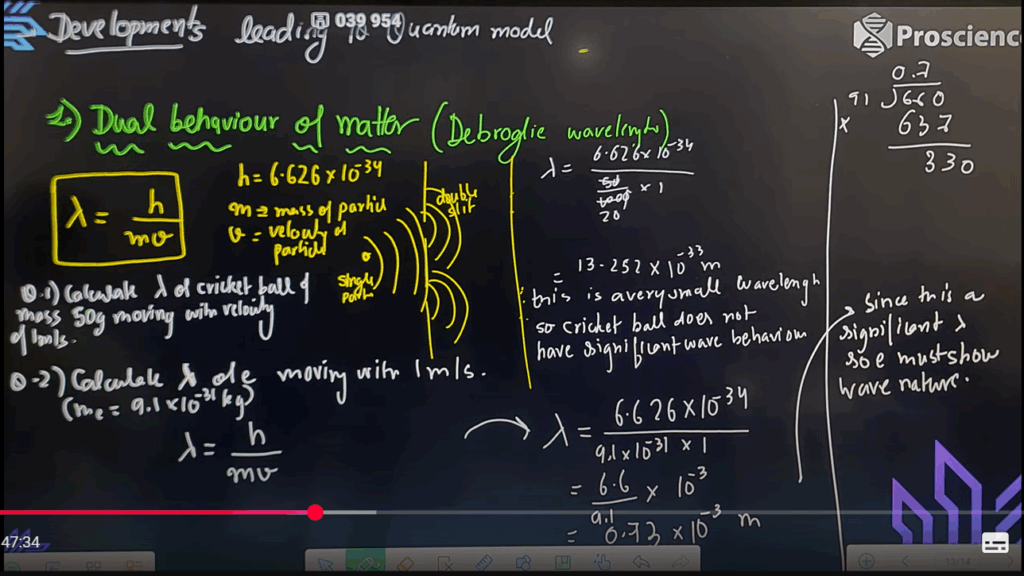 Developments leading to Quantum model
039 954
Proscience
1.) Dual behaviour of matter (Debroglie wavelength)
λ = h / mv
h = 6.626 × 10⁻³⁴
m = mass of particle
v = velocity of
particle
double
slit
single
Q-1) Calculate λ of cricket ball of
mass 50g moving with velocity
of 1m/s.
Q-2) Calculate λ of e moving with 1 m/s.
(mₑ = 9.1 × 10⁻³¹ kg)
λ = h / mv
λ = 6.626 × 10⁻³⁴ / 50/1000 × 1
20
= 13.252 × 10⁻³³ m
this is a very small wavelength
so cricket ball does not
have significant wave behaviour
λ = 6.626 × 10⁻³⁴ / 9.1 × 10⁻³¹ × 1
= 6.6 / 9.1 × 10⁻³
= 0.73 × 10⁻³ m
0.7
91 660
× 637
330
Since this is a
significant λ
so e must show
wave nature.
47:34
13/14